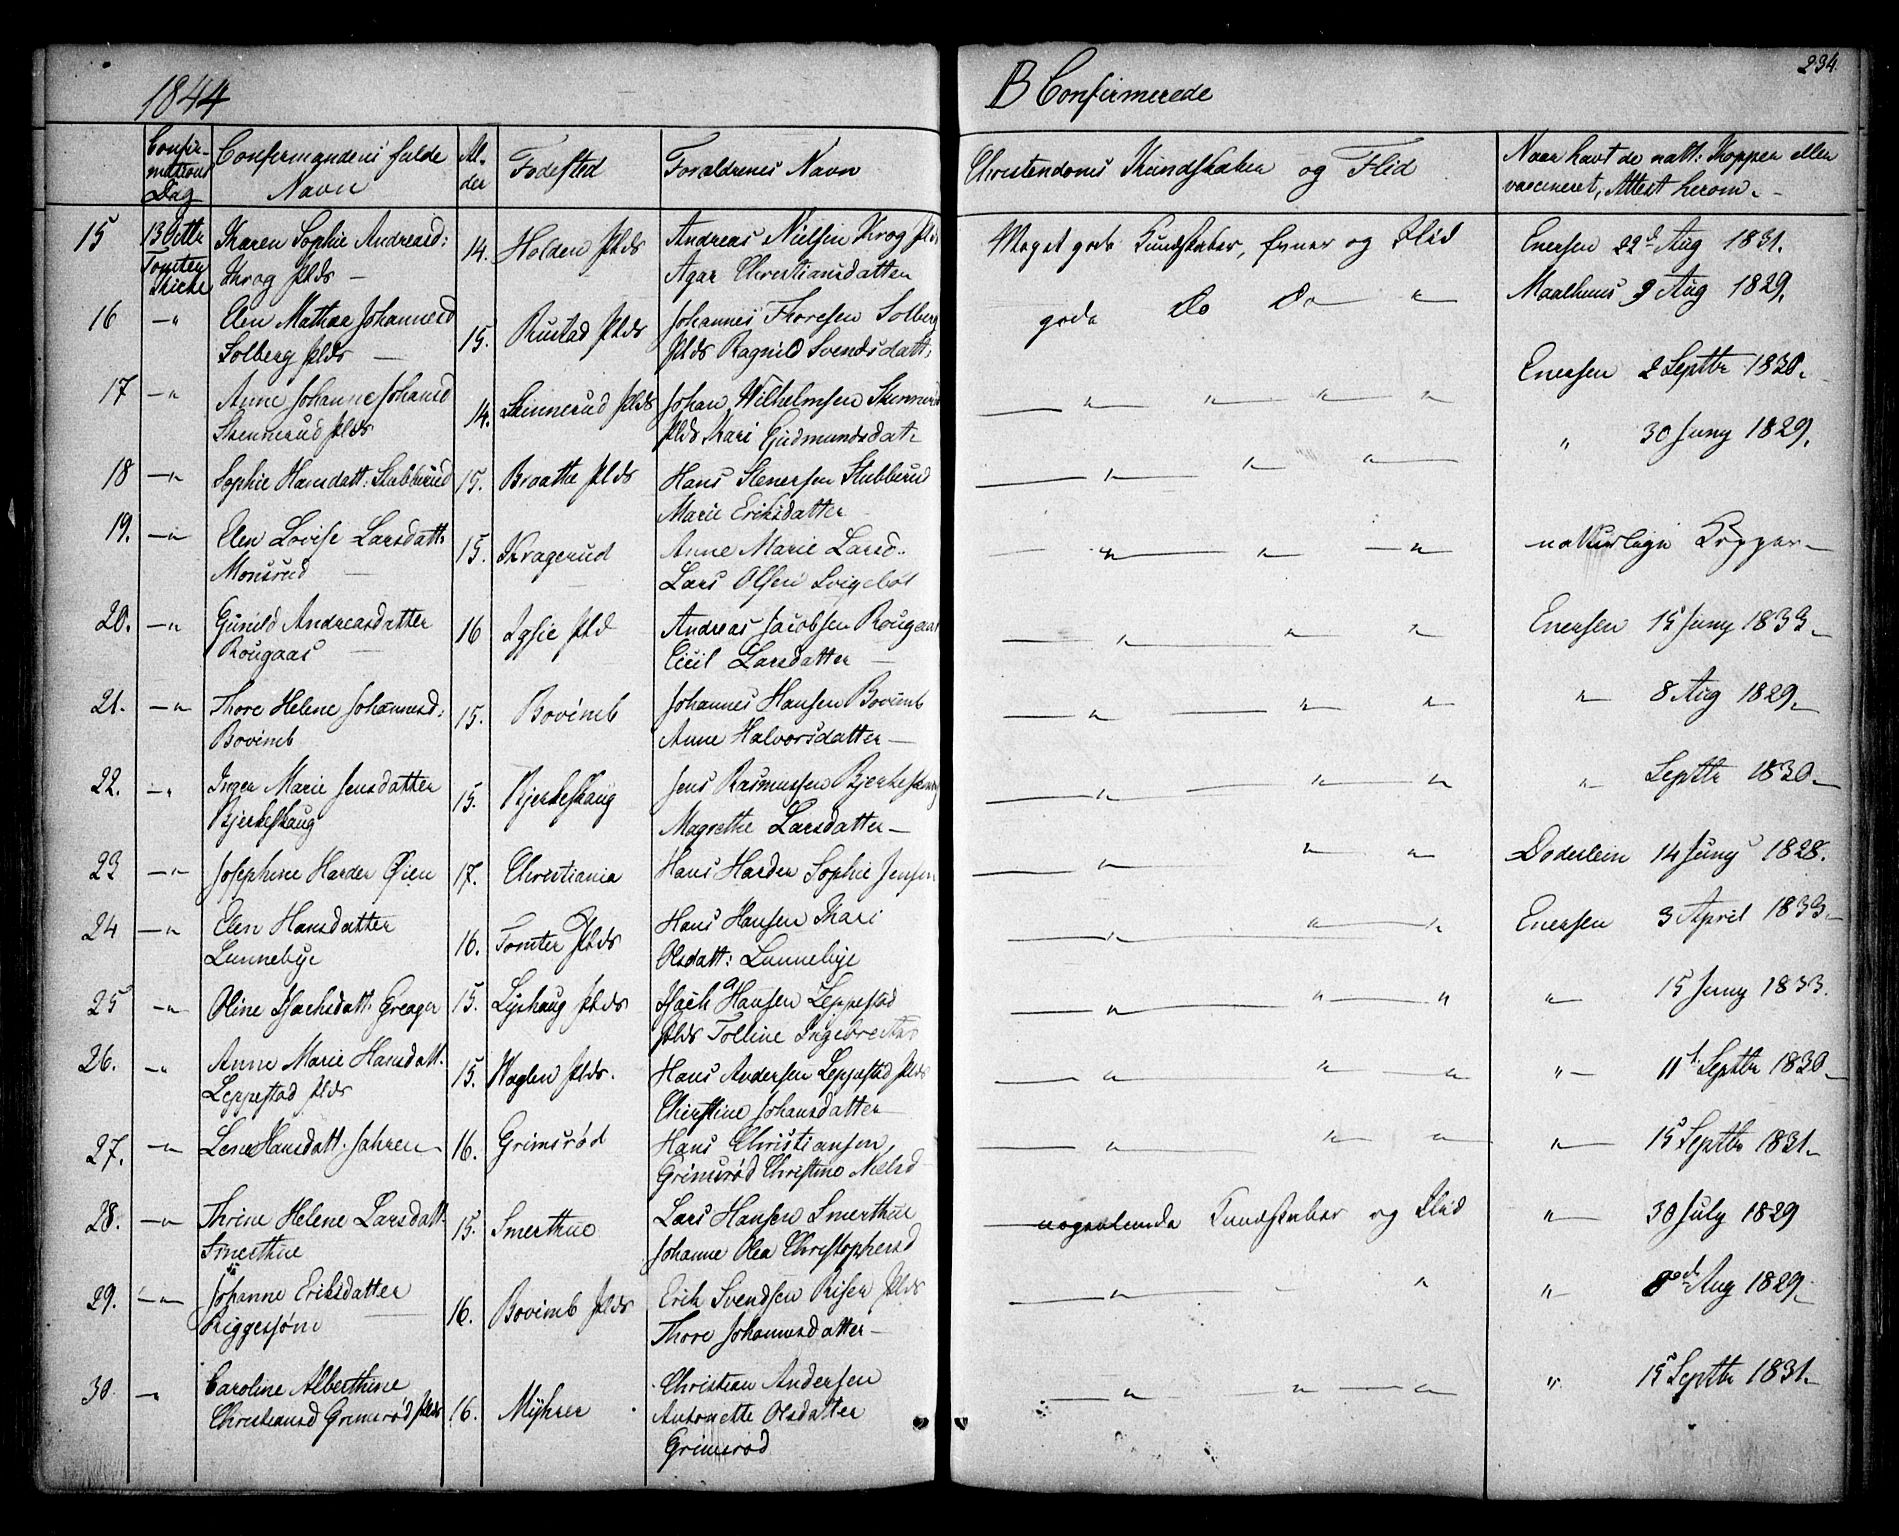 234.
1844
B Confirmerede
Confir-
mations
Dag
Confirmandens fulde
Navn
Al-
der
Fødested
Forældrenes Navn
Christendoms Kundskaber og Flid
Naar havt de natt: Kopper eller
vaccineret, Attest herom.-
15 13 Octbr Karen Sophie Andreasd: 14. Holden Plds Andreas Nielsen Krog Plds Meget gode Kundskaber, Evner og Flid Enersen 22d Aug 1831.
Tomter Kirke Krog Plds — Agar Christiansdatter
16 —" Elen Mathea Johannesd 15. Rustad Plds Johannes Thoresen Solberg gode Do Do — " Maalhuus 9 Aug 1829.
Solberg Plds — Plds Ragnild Svendsdatt:
17 —" Anne Johanne Johansd 14. Skinnerud Plds Johan Wilhelmsen Skinnerud — " " " " Enersen 2 Septbr 1830.
Skinnerud Plds Plds Kari Gudmundsdat:
18 —" Sophie Hansdatt: Stubberud 15. Braatte Plds Hans Stenersen Stubberud — " — " " — " 30 Juny 1829.
Marie Eriksdatter
19. —" Elen Lovise Larsdatt: 15. Kragerud Anne Marie Larsd. — " — " — " naturlige Kopper —
Monsrud — Lars Olsen Svigebøl
20. —" Gunild Andreasdatter 16 Lysie Pld Andreas Jacobsen Rougaas — " — " " Enersen 15 Juny 1833 —
Rougaas — Cicil Larsdatter —
21. —" Thore Helene Johannesd: 15. Bovimb Johannes Hansen Bovimb — " — " " " 8 Aug 1829 —
Bovimb Anne Halvorsdatter —
22. —" Inger Marie Jensdatter 15. Bjerkeskaug Jens Rasmussen Bjerkeskaug — " — " " " Septbr 1830 —
Bjerkeskaug Magrethe Larsdatter —
23 —" Josephine Harder Øien 17. Christiania Hans Harder Sophie Jensen — " " — " Doderlein 14 Juny 1828.
24 —" Elen Hansdatter 16. Tomter Plds Hans Hansen Kari — " — " — " Enersen 3 April 1833 —
Lunnebye Olsdatt: Lunnebye
25 —" Oline Isachsdatt: Greager 15. Lyshaug Plds Isach Hansen Leppestad — " — " — " " — 15 Juny 1833.
Plds Tolline Ingebretsd
26. —" Anne Marie Hansdatt. 15. Waglen Plds. Hans Andersen Leppestad Plds — " — " — " " — 11t Septbr 1830 —
Leppestad Plds Christine Johansdatter —
27. —" Lene Hansdatt: Jahren — 16. Grimsrød Hans Christiansen — " — " " " — 15 Septbr 1831 —
Grimsrød Christine Nielsd —
28. —" Thrine Helene Larsdatt. 15. Smerthue Lars Hansen Smerthue — nogenlunde Kundskaber og Flid " — 30 July 1829
Smerthue Johanne Olea Christophersd
29. —" Johanne Eriksdatter — 16. Bovimb Plds Erik Svendsen Risen Plds — " — " " — 8de Aug 1829 —
Riggesjøne Thore Johannesdatter —
30. —" Caroline Alberthine 16. Myhrer Christian Andersen — " — " — " " 15 Septbr 1831 —
Christiansd Grimsrød Plds Antonette Olsdatter
Grimsrød